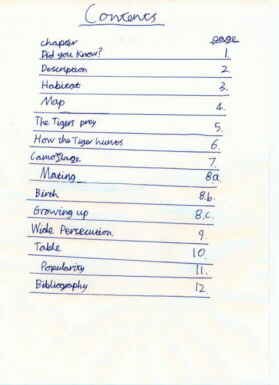 Contents
chapter page
Did you Know? 1.
Description 2.
Habitat 3.
Map 4.
The Tigers prey 5.
How the Tiger hunts 6.
Camoflage 7.
Mating 8a
Birth 8.b.
Growing up 8.c.
Wide Persecution 9
Table 10.
Popularity 11.
Bibliography 12